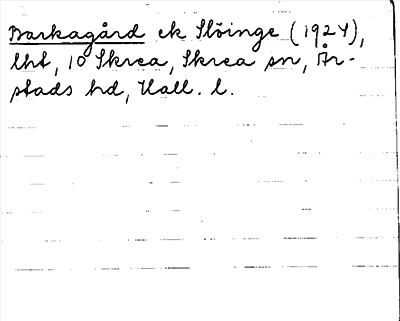 Barkagård ek Slöinge (1924),
lht, 10 Skrea, Skrea sn, År-
stads hd, Hall. l.